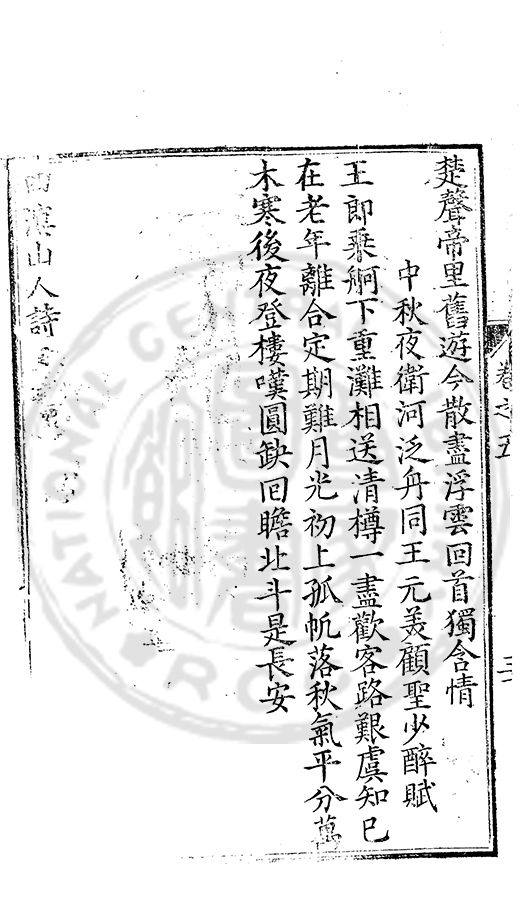 楚聲帝里舊遊今散盡浮雲回首獨含情
中秋夜衛河泛舟同王元美顧聖少醉賦
王郎乘舸下重灘相送清樽一盡歡客路艱虞知已
在老年離合定期難月光初上孤帆落秋氣平分萬
木寒後夜登樓嘆圓缺回瞻北斗是長安
山人詩
卷之五
NATIONAL CENTRAL